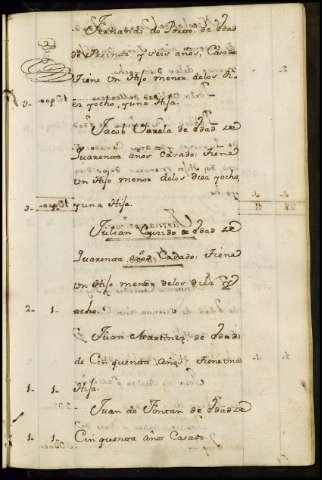 Fernando do Barro de edad
de treinta y seis años, Casado
tiene un Hijo menor delos di-
ez yocho, yuna Hija.
3.
Jacob Varela de edad de
quarenta años casado: tiene
un Hijo menor delos diez yocho,
3. yuna Hija.
Julian de edad de
quarenta años Casado: tiene
un Hijo menor delos diez y
2. 1. ocho.
Juan Martinez, de edad
de Cinquenta años tiene una
1. 1. Hija.
Juan do Fontan de edad de
1. 1. Cinquenta años Casado.